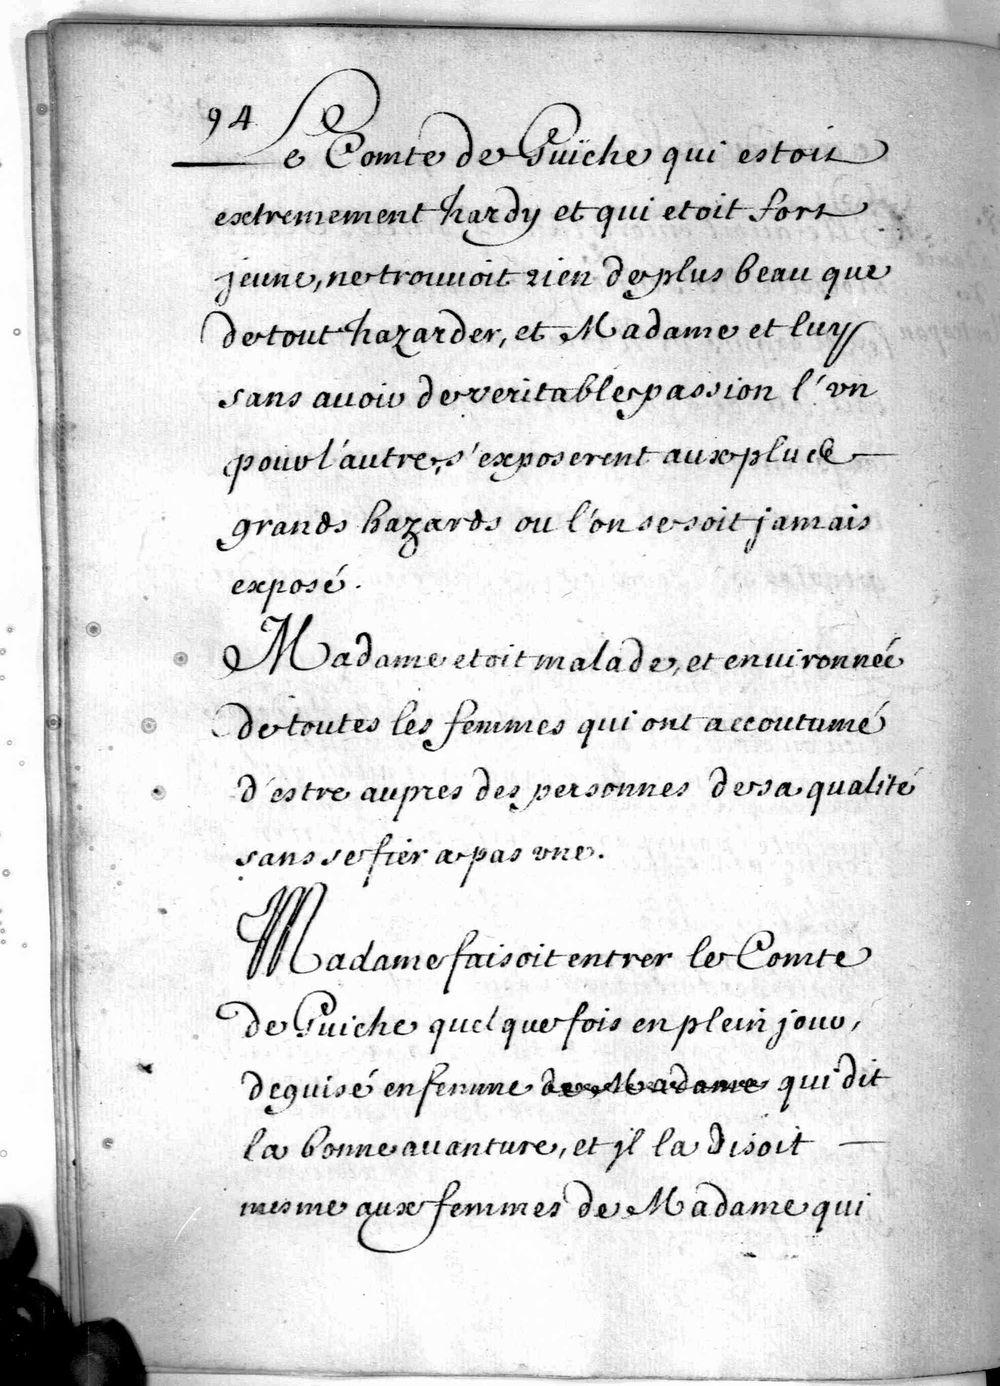 94
Le Comte de Guiche qui estoit
extremement hardy et qui etoit fort
jeune, ne trouuoit rien de plus beau que
de tout hazarder, et Madame et luy
sans auoir de veritable passion l'vn
pour l'autre, s'exposerent aux plus
grands hazards ou l'on se soit jamais
exposé.
Madame etoit malade, et enuironnée
de toutes les femmes qui ont accoutumé
d'estre aupres des personnes de sa qualité
sans se fier a pas vne.
Madame faisoit entrer le Comte
de Guiche quelque fois en plein jour,
deguisé en femme de Madame qui dit
la bonne auanture, et jl la disoit
mesme aux femmes de Madame qui